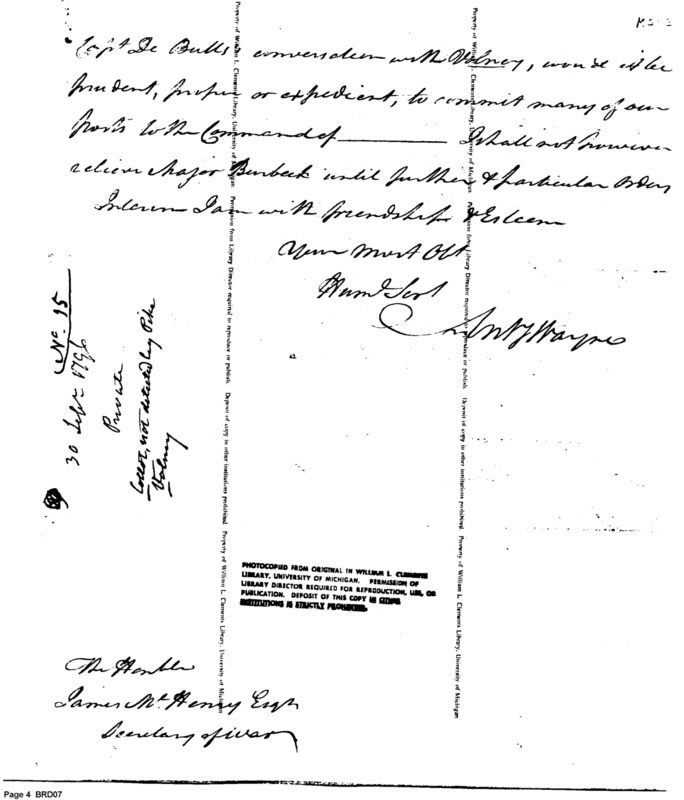 Capt De Butts's conversation with Volney, would it be
prudent, proper or expedient, to commit many of our
posts to the Command of ________ I shall not however
relieve Major Burbeck until further & particular Orders
Interim I am with friendship & Esteem
Your Most Obt
Humb Sert
Anty Wayne
No. 15
30 Sepr 1796
Private
Collot, not detected by Pike
Volney
PHOTOCOPIED FROM ORIGINAL IN WILLIAM L. CLEMENTS
LIBRARY, UNIVERSITY OF MICHIGAN. PERMISSION OF
LIBRARY DIRECTOR REQUIRED FOR REPRODUCTION, USE, OR
PUBLICATION. DEPOSIT OF THIS COPY IN OTHER
INSTITUTIONS IS STRICTLY PROHIBITED.
Property of William L. Clements Library, University of Michigan. Permission from Library Director required to reproduce or publish. Deposit of copy in other institutions prohibited. Property of William L. Clements Library, University of Michigan
Property of William L. Clements Library, University of Michigan. Permission from Library Director required to reproduce or publish. Deposit of copy in other institutions prohibited. Property of William L. Clements Library, University of Michigan
The Honble
James McHenry Esqr
Secretary of War
Page 4 BRD07